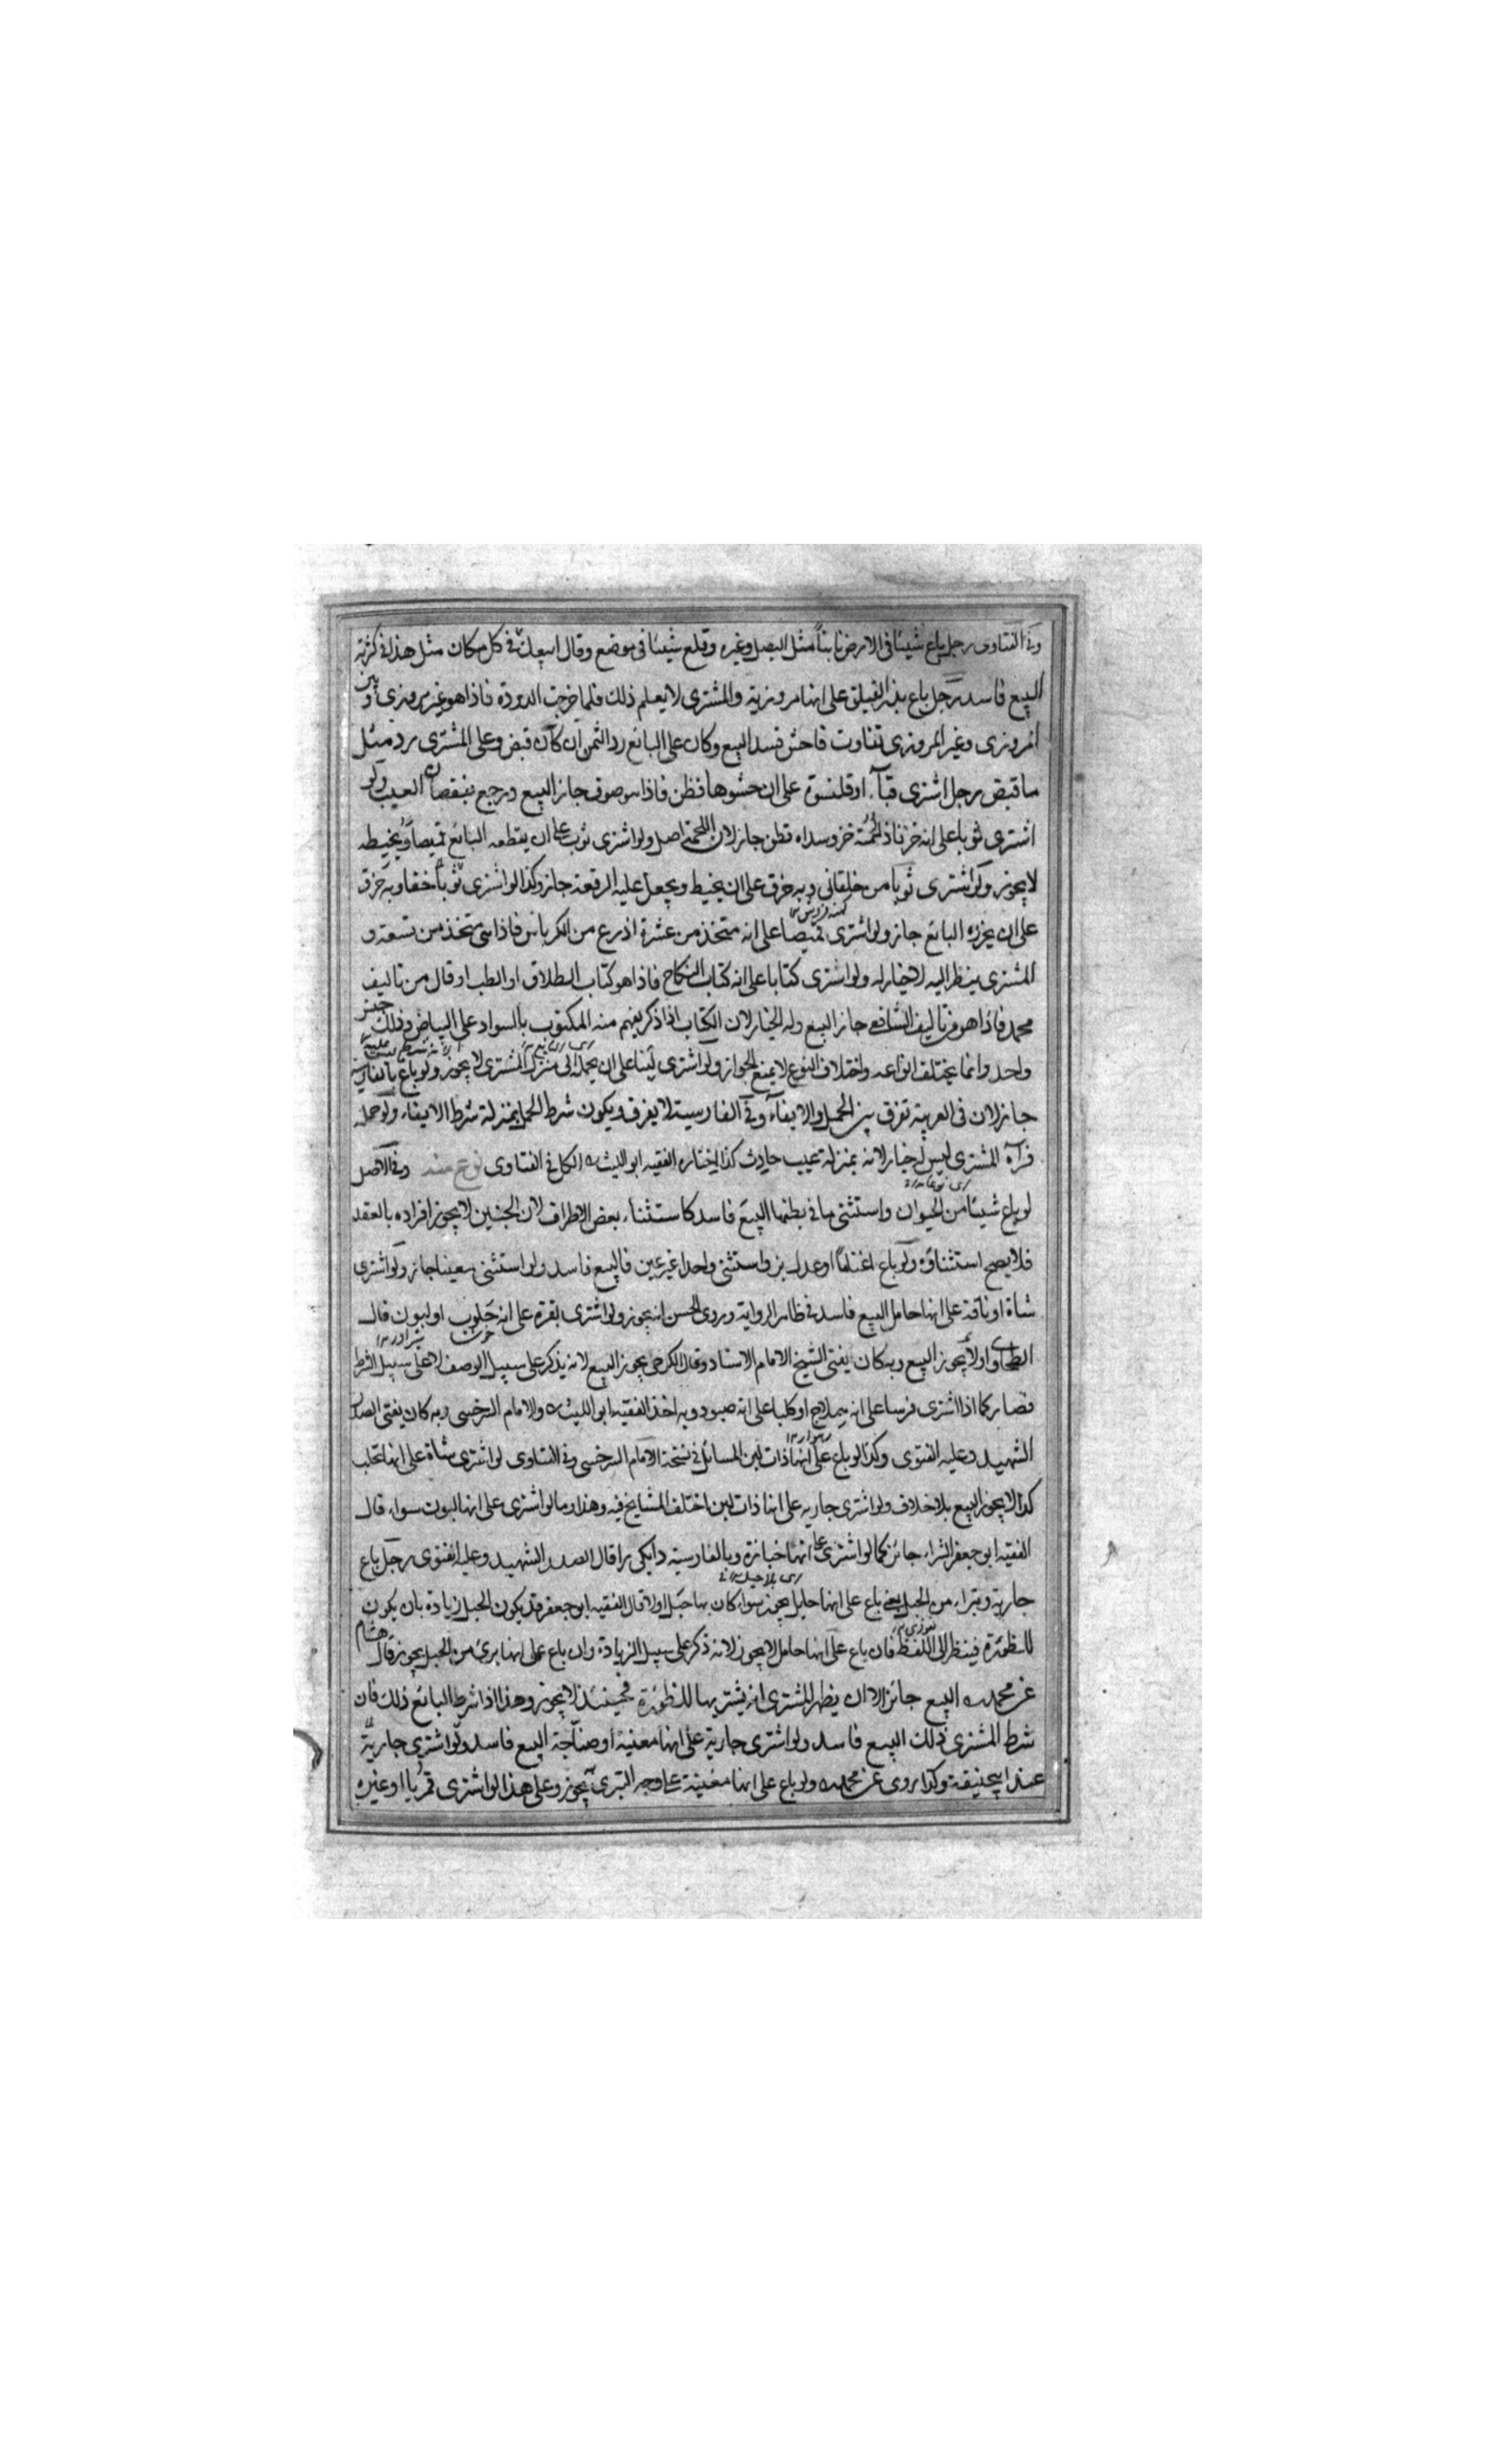 وفى الفتاوى رجل باع شيئا فى الارض نابتاً مثل البصل وغيره وقلع شيئا فى موضع وقال ابيعك فى كل مكان مثل هذا فى كثرته
البيع فاسد رجل باع بذر الفيلق على انها مروزية والمشترى لا يعلم ذلك فلما خرجت الدودة فاذا هو غير مروزى وبين
المروزى وغير المروزى تفاوت فاحش فسد البيع وكان على البائع رد الثمن ان كان قبض وعلى المشترى رد مثل
ما قبض رجل اشترى قبآء او قلنسوة على ان حشوها قطن فاذا هو صوف جاز البيع ورجع بنقصان العيب ولو
اشترى ثوبا على انه خز فاذا لحمته خز وسداه قطن جاز لان اللحمة اصل ولو اشترى ثوبا على ان يقطعه البائع قميصا ويخيطه
لا يجوز ولو اشترى ثوبا من خلقانى وبه خرق على ان يخيط ويجعل عليه الرقعة جاز وكذا لو اشترى ثوبا خفا وبه خرق
كهنه فروش
على ان يخرزه البائع جاز ولو اشترى قميصا على انه متخذ من عشرة اذرع من الكرباس فاذا هى متخذ من تسعة و
المشترى ينظر اليه لا خيار له ولو اشترى كتابا على انه كتاب النكاح فاذا هو كتاب الطلاق او الطب او قال من تاليف
محمد فاذا هو من تاليف الشافعى جاز البيع وله الخيار لان الكتاب اذا ذكر يفهم منه المكتوب بالسواد على البياض وذلك جنس
واحد وانما يختلف انواعه واختلاف النوع لا يمنع الجواز ولو اشترى تبنا على ان يحمله الى منزل المشترى لا يجوز ولو باع بالفارسية
جاز لان فى العربية تفرق بين الحمل والايفآء وفى الفارسية لا يفرق ويكون شرط الحمل بمنزلة شرط الايفاء ولو حمله
فرآه المشترى ليس له خيار لانه بمنزلة عيب حادث كذا اختاره الفقيه ابو الليث الكل فى الفتاوى نوع منه وفى الاصل
لو باع شيئا من الحيوان واستثنى ما فى بطنها البيع فاسد كاستثناء بعض الاطراف لان الجنين لا يجوز افراده بالعقد
فلا يصح استثناؤه ولو باع اغناما او عدل بز واستثنى واحدا غير عين فالبيع فاسد ولو استثنى معينا جاز ولو اشترى
شاة او ناقة على انها حامل البيع فاسد فى ظاهر الرواية وروى الحسن انه يجوز ولو اشترى بقرة على انه حلوب او لبون قال
الطحاوى لا يجوز البيع وبه كان يفتى الشيخ الامام الاستاد وقال الكرخى يجوز البيع لانه يذكر على سبيل الوصف لا على سبيل الشرط
فصار كما اذا اشترى فرسا على انه هملاج او كلبا على انه صيود وبه اخذ الفقيه ابو الليث والامام السرخسى وبه كان يفتى الصدر
رهوار
الشهيد وعليه الفتوى وكذا لو باع على انها ذات لبن المسائل فى نسخة الامام السرخسى وفى الفتاوى لو اشترى شاة على انها تحلب
كذا لا يجوز البيع بلا خلاف ولو اشترى جارية على انها ذات لبن اختلف المشايخ فيه وهذا وما لو اشترى على انها لبون سواء قال
الفقيه ابو جعفر الشراء جائز كما لو اشترى على انها خبازة وبالفارسية دايكى را قال الصدر الشهيد وعليه الفتوى رجل باع
جارية وتبراء من الحبل يعنى باع على انها حايل يجوز سواء كان بها حبل او لا قال الفقيه ابو جعفر قد يكون الحبل زيادة بان يكون
للظئورة فينظر الى اللفظ فان باع على انها حامل لا يجوز لانه ذكر على سبيل الزيادة وان باع على انها برئ من الحبل يجوز قال هشام
عن محمد البيع جائز الا ان يظهر المشترى انه يشتريها للظئورة فحينئذ لا يجوز وهذا اذا شرط البائع ذلك فان
شرط المشترى ذلك البيع فاسد ولو اشترى جارية على انها مغنية او صناجة البيع فاسد ولو اشترى جارية
عند ابى حنيفة وكذا روى عن محمد ولو باع على انها مغنية على وجه التبرى يجوز وعلى هذا لو اشترى قمريا او غيره